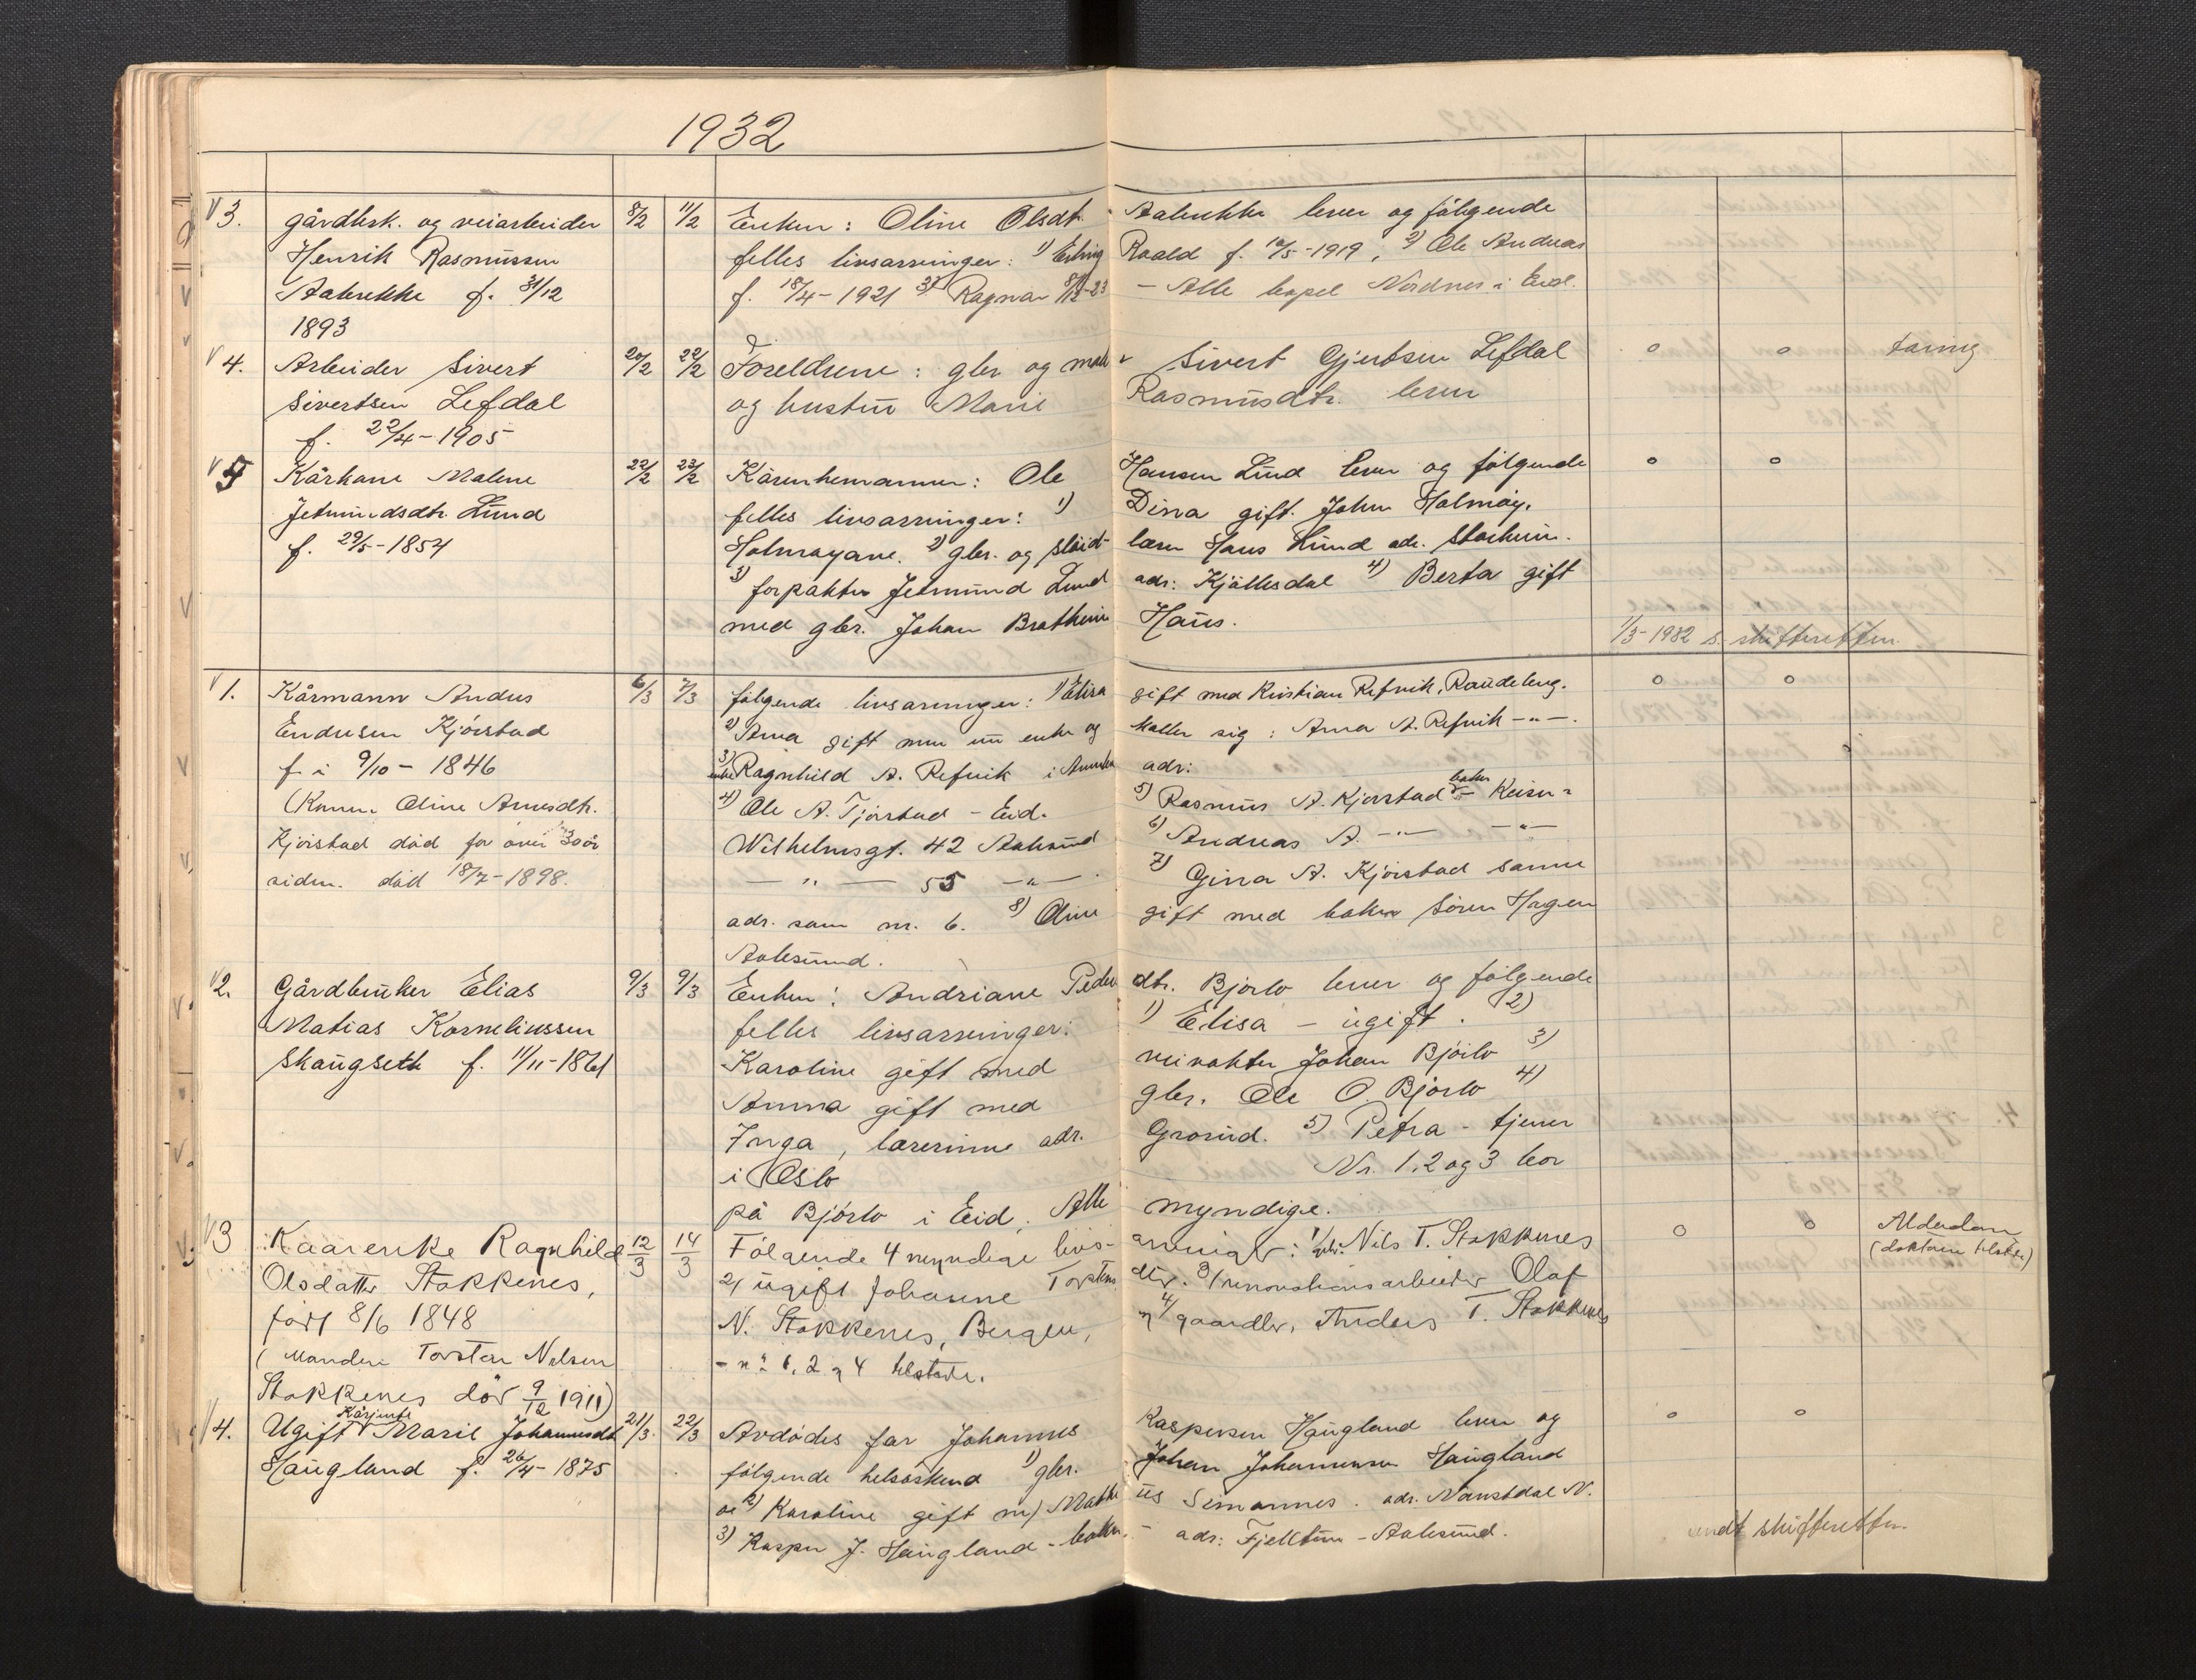 1932
3. gårdbrk. og veiarbeider 8/2 11/2 Enken: Oline Olsdt. Aalrekke lever og følgende
Henrik Rasmussen felles livsarvinger: 1) Erling Roald f. 12/5-1919, 2) Ole Andreas
Aalrekke f. 31/12 f. 18/4-1921 3) Ragnar - Alle bopel Nordnes i Eid.
1893
4. Arbeider Sivert 20/2 22/2 Foreldrene: gbr og Sivert Gjertsen Lefdal o o taring
Sivertsen Lefdal og hustru Marie Rasmusdtr. lever
f. 22/4-1905
5 Kårkone Malene 22/2 23/2 Kårenkemannen: Ole Hansen Lund lever og følgende o o
Jetmundsdtr. Lund felles livsarvinger: 1) Dina gift John Holmøy.
f. 29/5-1854 Holmøyane. 2) gbr. og sløid- lærer Hans Lund adr. Starheim.
3) forpakter Jetmund Lund adr: Kjøllesdal 4) Berta gift
med gbr. Johan Brotheim Haus.
1/3-1932 s. skifteretten.
1. Kårmann Anders 6/3 7/3 følgende livsarvinger: 1) Elisa gift med Kristian Refvik, Raudeberg. o o
Endresen Kjørstad 2) Anna gift men nu enke og kaller sig: Anna A. Refvik -"-.
f. i 9/10-1846 3) enke Ragnhild A. Refvik i Amerika adr:
(Konen Oline Arnesdtr. 4) Ole A. Tjørstad - Eid. 5) Rasmus A. Kjørstad baker - Keiser
Kjørstad død for over 30 år Wilhelmsgt. 42 Aalesund 6) Andreas A. -"- -"-
siden. død 18/7-1898. -"- 55 -"-. 7) Gina A. Kjørstad samme
adr. som nr. 6. 8) Oline gift med baker Søren Hagen
Aalesund.
2. Gårdbruker Elias 9/3 9/3 Enken: Andriane Peders dtr. Bjørlo lever og følgende
Matias Korneliussen felles livsarvinger: 1) Elisa - ugift. 2)
Skaugseth f. 11/11-1861 Karoline gift med veivokter Johan Bjørlo 3)
Anna gift med gbr. Ole O. Bjørlo 4)
Inga, lærerinne adr. Grorud. 5) Petra - tjener
i Oslo Nr. 1, 2 og 3 bor
på Bjørlo i Eid. Alle myndige.
3 Kaarenke Ragnhild 12/3 14/3 Følgende 4 myndige livs- arvinger: 1/ gbr. Nils T. Stokkenes o o Alderdom
Olsdatter Stokkenes, 2/ ugift Johanne Torstens dtr. 3/ renovationsarbeider Olaf (doktoren tilstede)
født 8/6 1848 N. Stokkenes, Bergen, og 4/ gaardbr. Anders T. Stokkenes
(Manden Torsten Nilsen - nr 1, 2 og 4 tilstede.
Stokkenes død 9/12 1911)
4. Ugift Kårjente Marie Johannesdt 21/3 22/3 Avdødes far Johannes Kaspersen Haugland lever og o o
Haugland f. 26/4-1875 følgende helsøskend 1) gbr. Johan Johannessen Haugland
2) Karoline gift m/ Matti us Simannes. adr. Naustdal N.
3) Kasper J. Haugland - baker. - adr: Fjelltun - Aalesund.
sendt skifteretten.